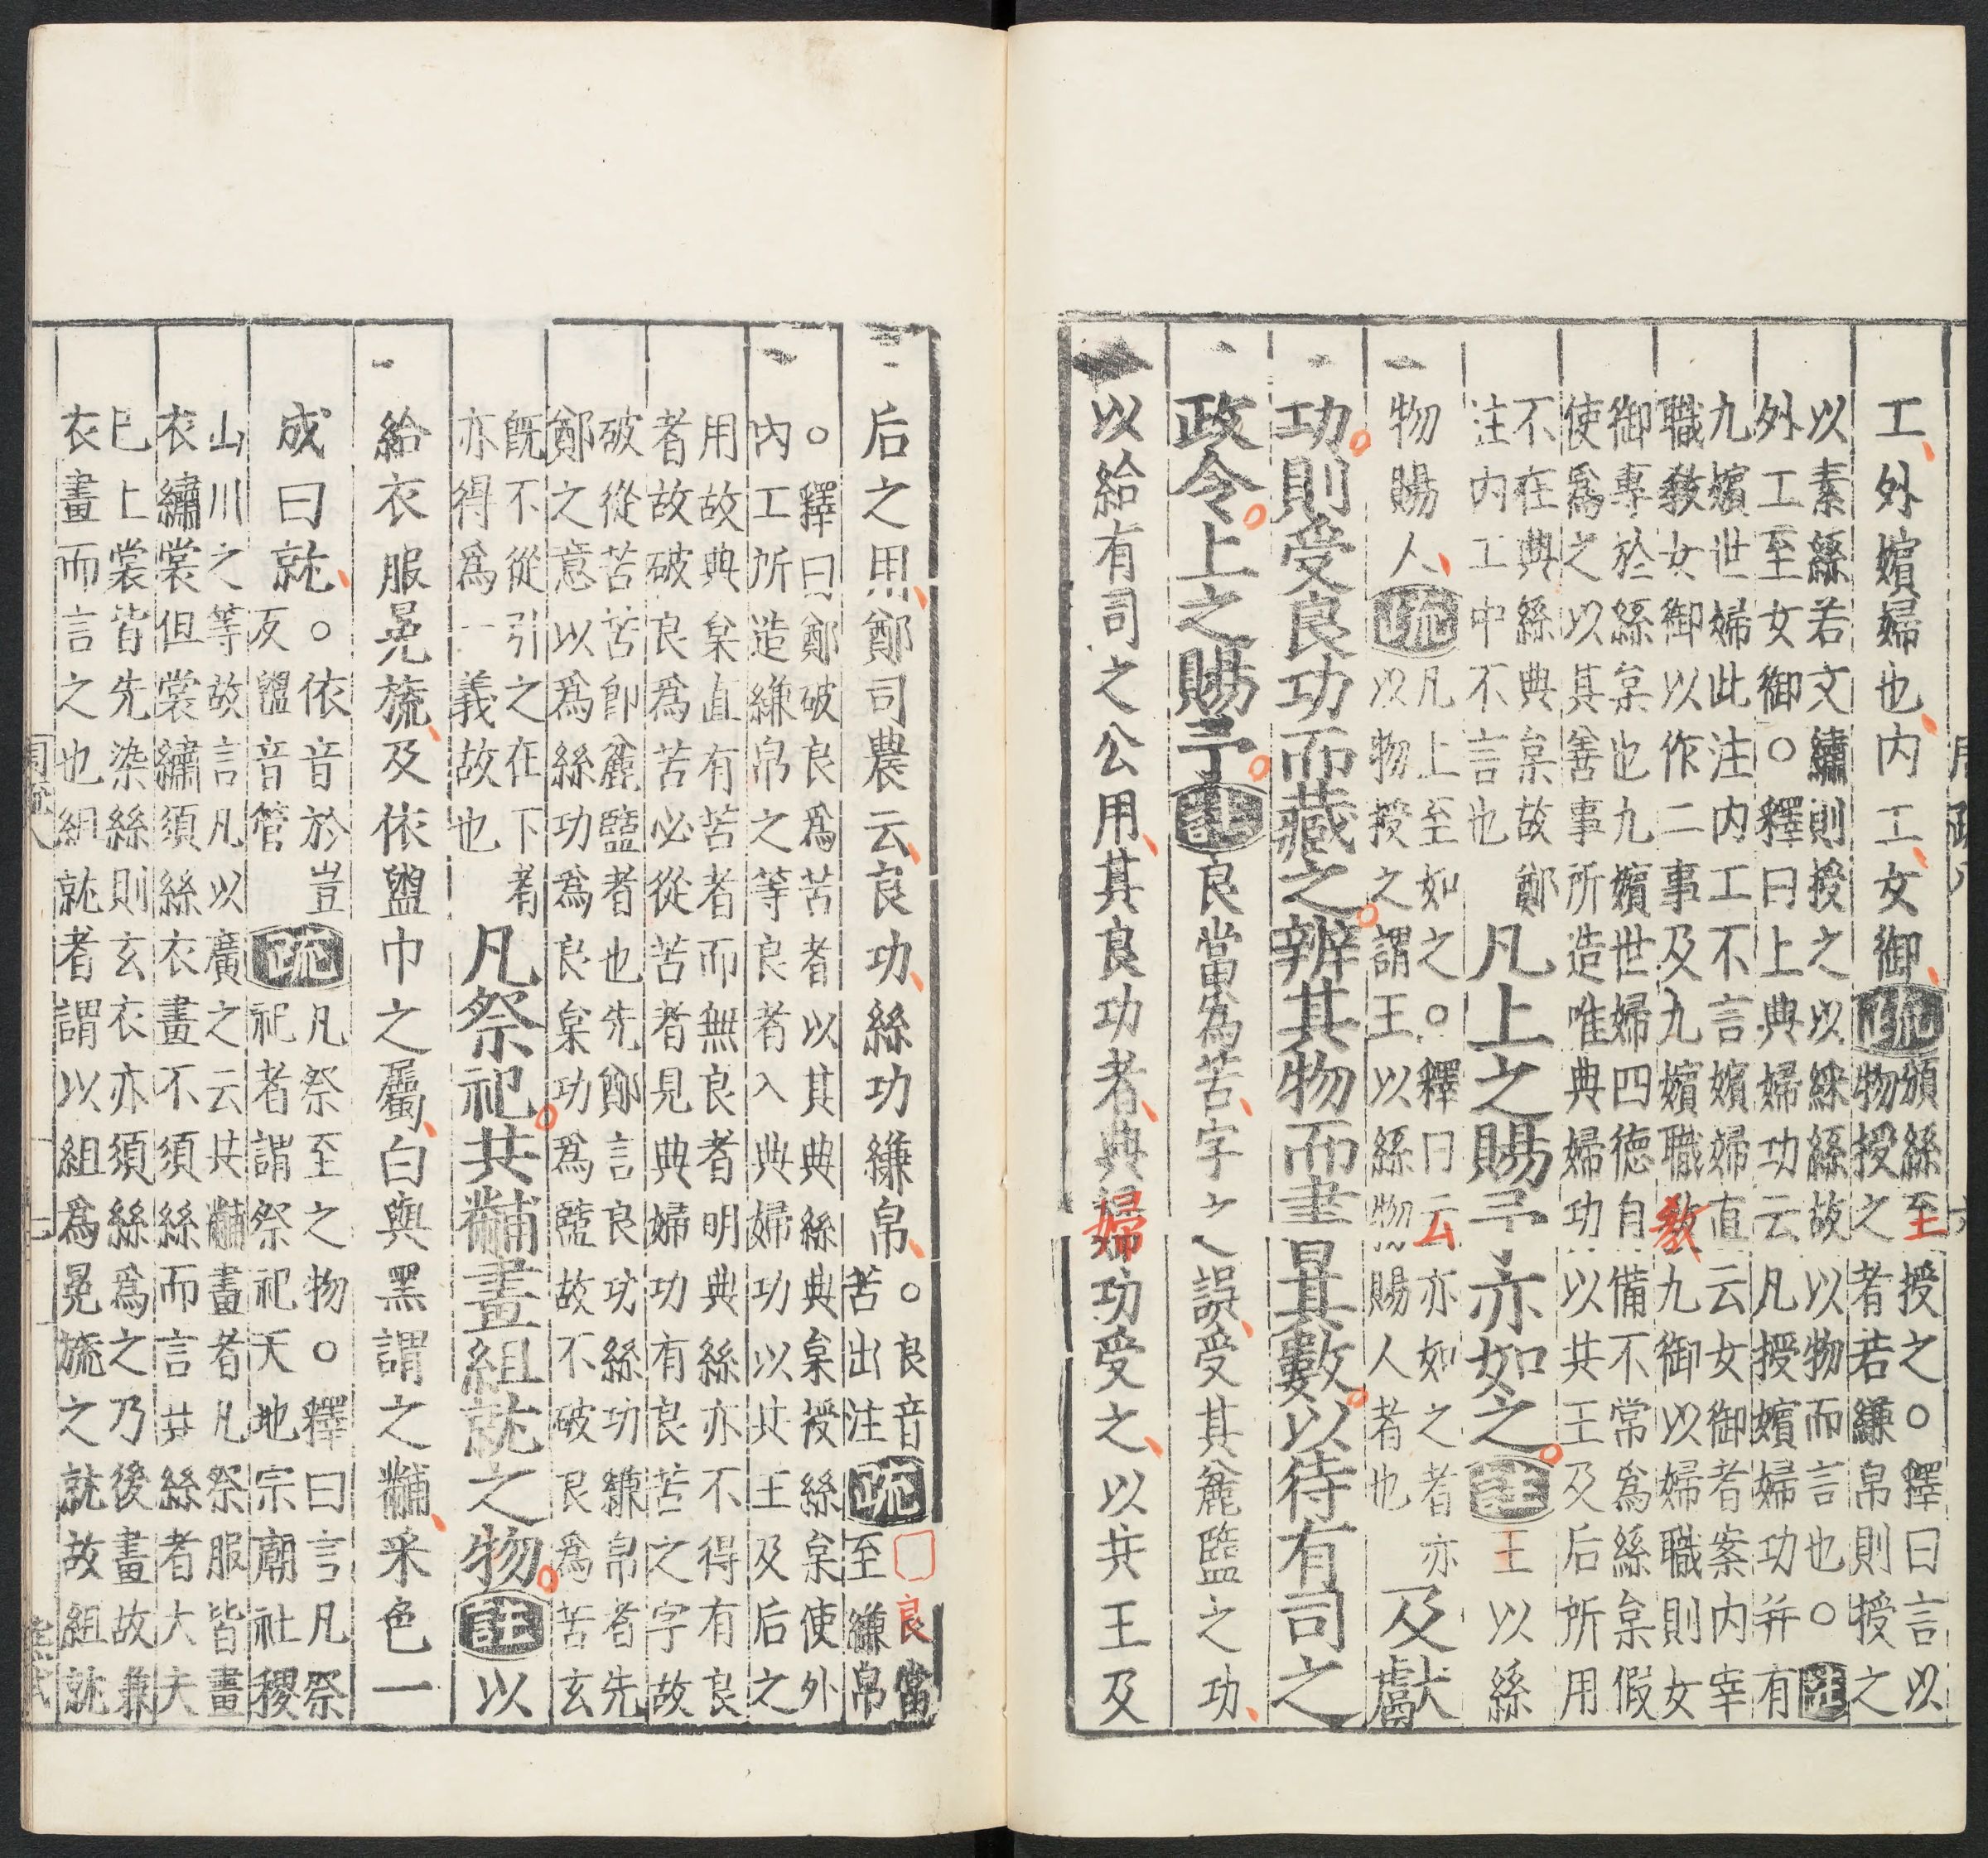 工外嬪婦也内工女御疏頒絲至授之○釋曰言以
物授之者若縑帛則授之
以素絲若文繡則授之以綵絲故以物而言也○注
外工至女御○釋曰上典婦功云凡授嬪婦功并有
九嬪世婦此注内工不言嬪婦直云女御者案内宰
職敎女御以作二事及九嬪職敎九御以婦職則女
御專於絲枲也九嬪世婦四德自備不常爲絲枲假
使爲之以其善事所造唯典婦功以共王及后所用
不在典絲典枲故鄭
注内工中不言也
凡上之賜予亦如之註王以絲
物賜人疏凡上至如之○釋曰云亦如之者亦
以物授之謂王以絲物賜人者也
及獻
功則受良功而藏之辨其物而書其數以待有司之
政令上之賜予註良當爲苦字之誤受其麄盬之功
以給有司之公用其良功者典婦功受之以共王及
后之用鄭司農云良功絲功縑帛○良音
苦出注
疏良當
至縑帛
○釋曰鄭破良爲苦者以其典絲典枲授絲枲使外
内工所造縑帛之等良者入典婦功以共王及后之
用故典枲直有苦者而無良者明典絲亦不得有良
者故破良爲苦必從苦者見典婦功有良苦之字故
破從苦苦即麄盬者也先鄭言良功絲功縑帛者先
鄭之意以爲絲功爲良枲功爲盬故不破良爲苦玄
旣不從引之在下者
亦得爲一義故也
凡祭祀共黼畫組就之物註以
給衣服冕旒及依盥巾之屬白與黑謂之黼采色一
成曰就○依音於豈
反盥音管
疏凡祭至之物○釋曰言凡祭
祀者謂祭祀天地宗廟社稷
山川之等故言凡以廣之云共黼畫者凡祭服皆畫
衣繡裳但裳繡須絲衣畫不須絲而言共絲者大夫
已上裳皆先染絲則玄衣亦須絲爲之乃後畫故兼
衣畫而言之也組就者謂以組爲冕旒之就故組就